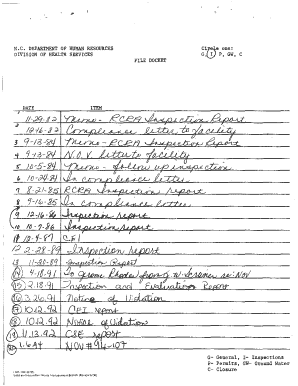 N.C. DEPARTMENT OF HUMAN RESOURCES
DIVISION OF HEALTH SERVICES
Circle one:
G, I, P, GW, C
FILE DOCKET
DATE ITEM
11-29-82 Memo-RCRA Inspection Report
12-16-82 Compliance letter to facility
3 9-13-84 Memo-RCRA Inspection Report
4 9-13-84 N.O.V. letter to facility
5 10-5-84 Memo-follow up inspection
6 10-24-84 In compliance letter
7 8-21-85 RCRA Inspection report
8 9-16-85 In compliance letter
9 12-16-86 Inspection report
10 10-7-86 Inspection report
11 12-4-87 CEI
12 2-28-89 Inspection report
13 11-20-89 Inspection Report
14 4.18.91 To Jerome Rhodes from w. Screener re: NOV
15 2.18.91 Inspection and Evaluation Report
16 3.26.91 Notice of Violation
17 10.12.92 CEI report
18 10.12.92 Notice of Violation
19 1.13.93 CSE report
20 NOV # 94-107
G- General, I- Inspections
P- Permits, GW- Ground Water
C- Closure